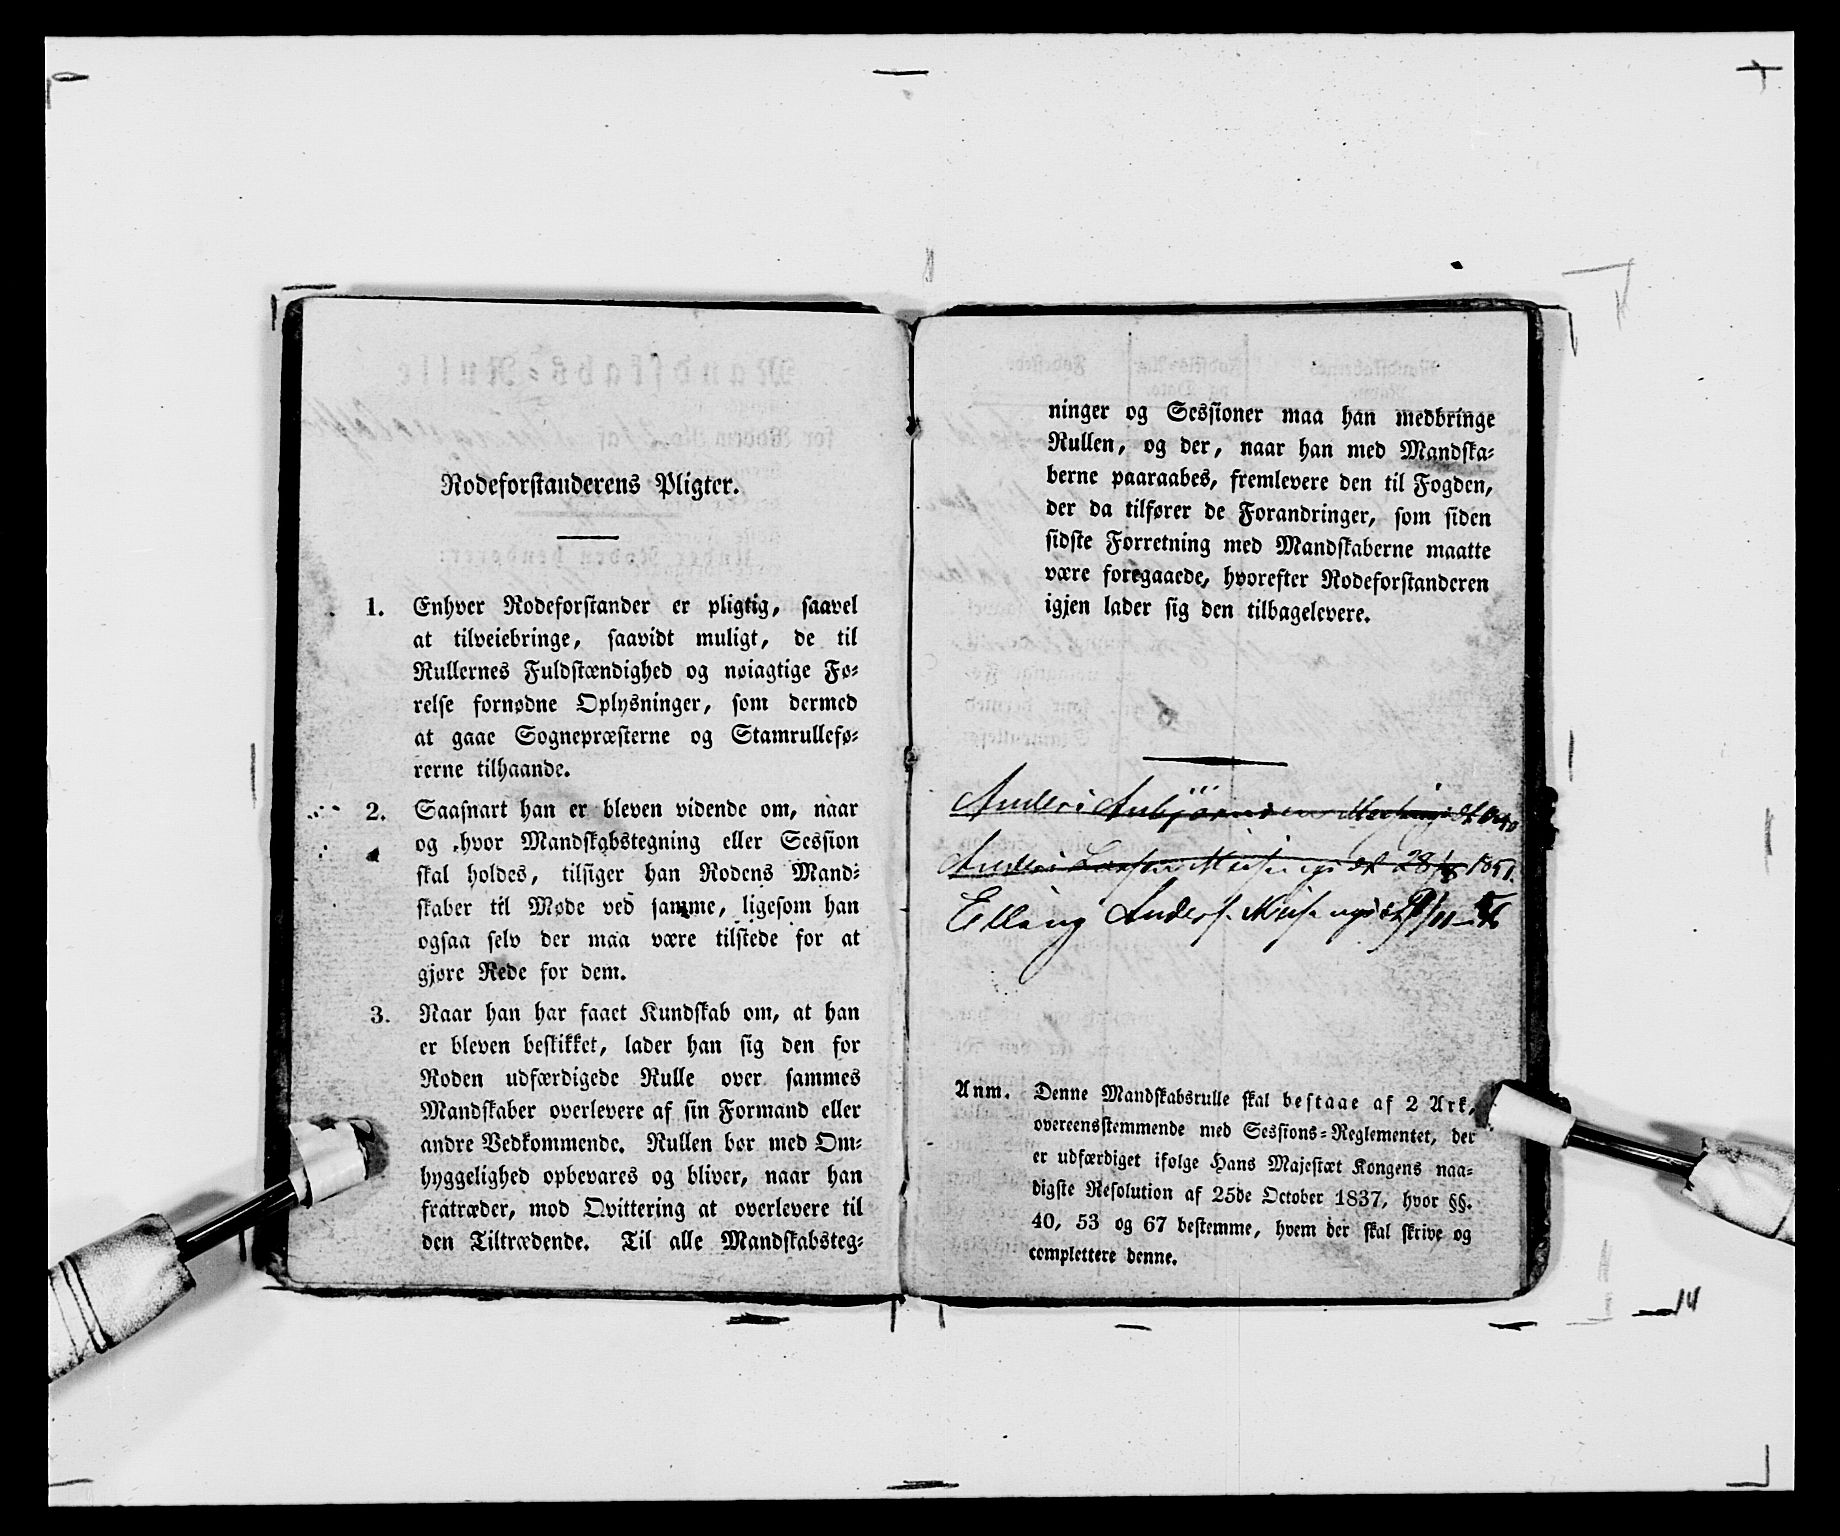 Rodeforstanderens Pligter.
1. Enhver Rodeforstander er pligtig, saavel
at tilveiebringe, saavidt muligt, de til
Rullernes Fuldstændighed og nøiagtige Fø-
relse fornødne Oplysninger, som dermed
at gaae Sognepræsterne og Stamrullefø-
rerne tilhaande.
2. Saasnart han er bleven vidende om, naar
og hvor Mandskabstegning eller Session
skal holdes, tilsiger han Rodens Mand-
skaber til Møde ved samme, ligesom han
ogsaa selv der maa være tilstede for at
gjøre Rede for dem.
3. Naar han har faaet Kundskab om, at han
er bleven beskikket, lader han sig den for
Roden udfærdigede Rulle over sammes
Mandskaber overlevere af sin Formand eller
andre Vedkommende. Rullen bør med Om-
hyggelighed opbevares og bliver, naar han
fratræder, mod Qvittering at overlevere til
den Tiltrædende. Til alle Mandskabsteg-
ninger og Sessioner maa han medbringe
Rullen, og der, naar han med Mandska-
berne paaraabes, fremlevere den til Fogden,
der da tilfører de Forandringer, som siden
sidste Forretning med Mandskaberne maatte
være foregaaede, hvorefter Rodeforstanderen
igjen lader sig den tilbagelevere.
Anders
Anders Larsen 28 1851.
Elling Anders.
Anm. Denne Mandskabsrulle skal bestaae af 2 Ark,
overeensstemmende med Sessions-Reglementet, der
er udfærdiget ifølge Hans Majestæt Kongens naa-
digste Resolution af 25de October 1837, hvor §§.
40, 53 og 67 bestemme, hvem der skal skrive og
complettere denne.
14